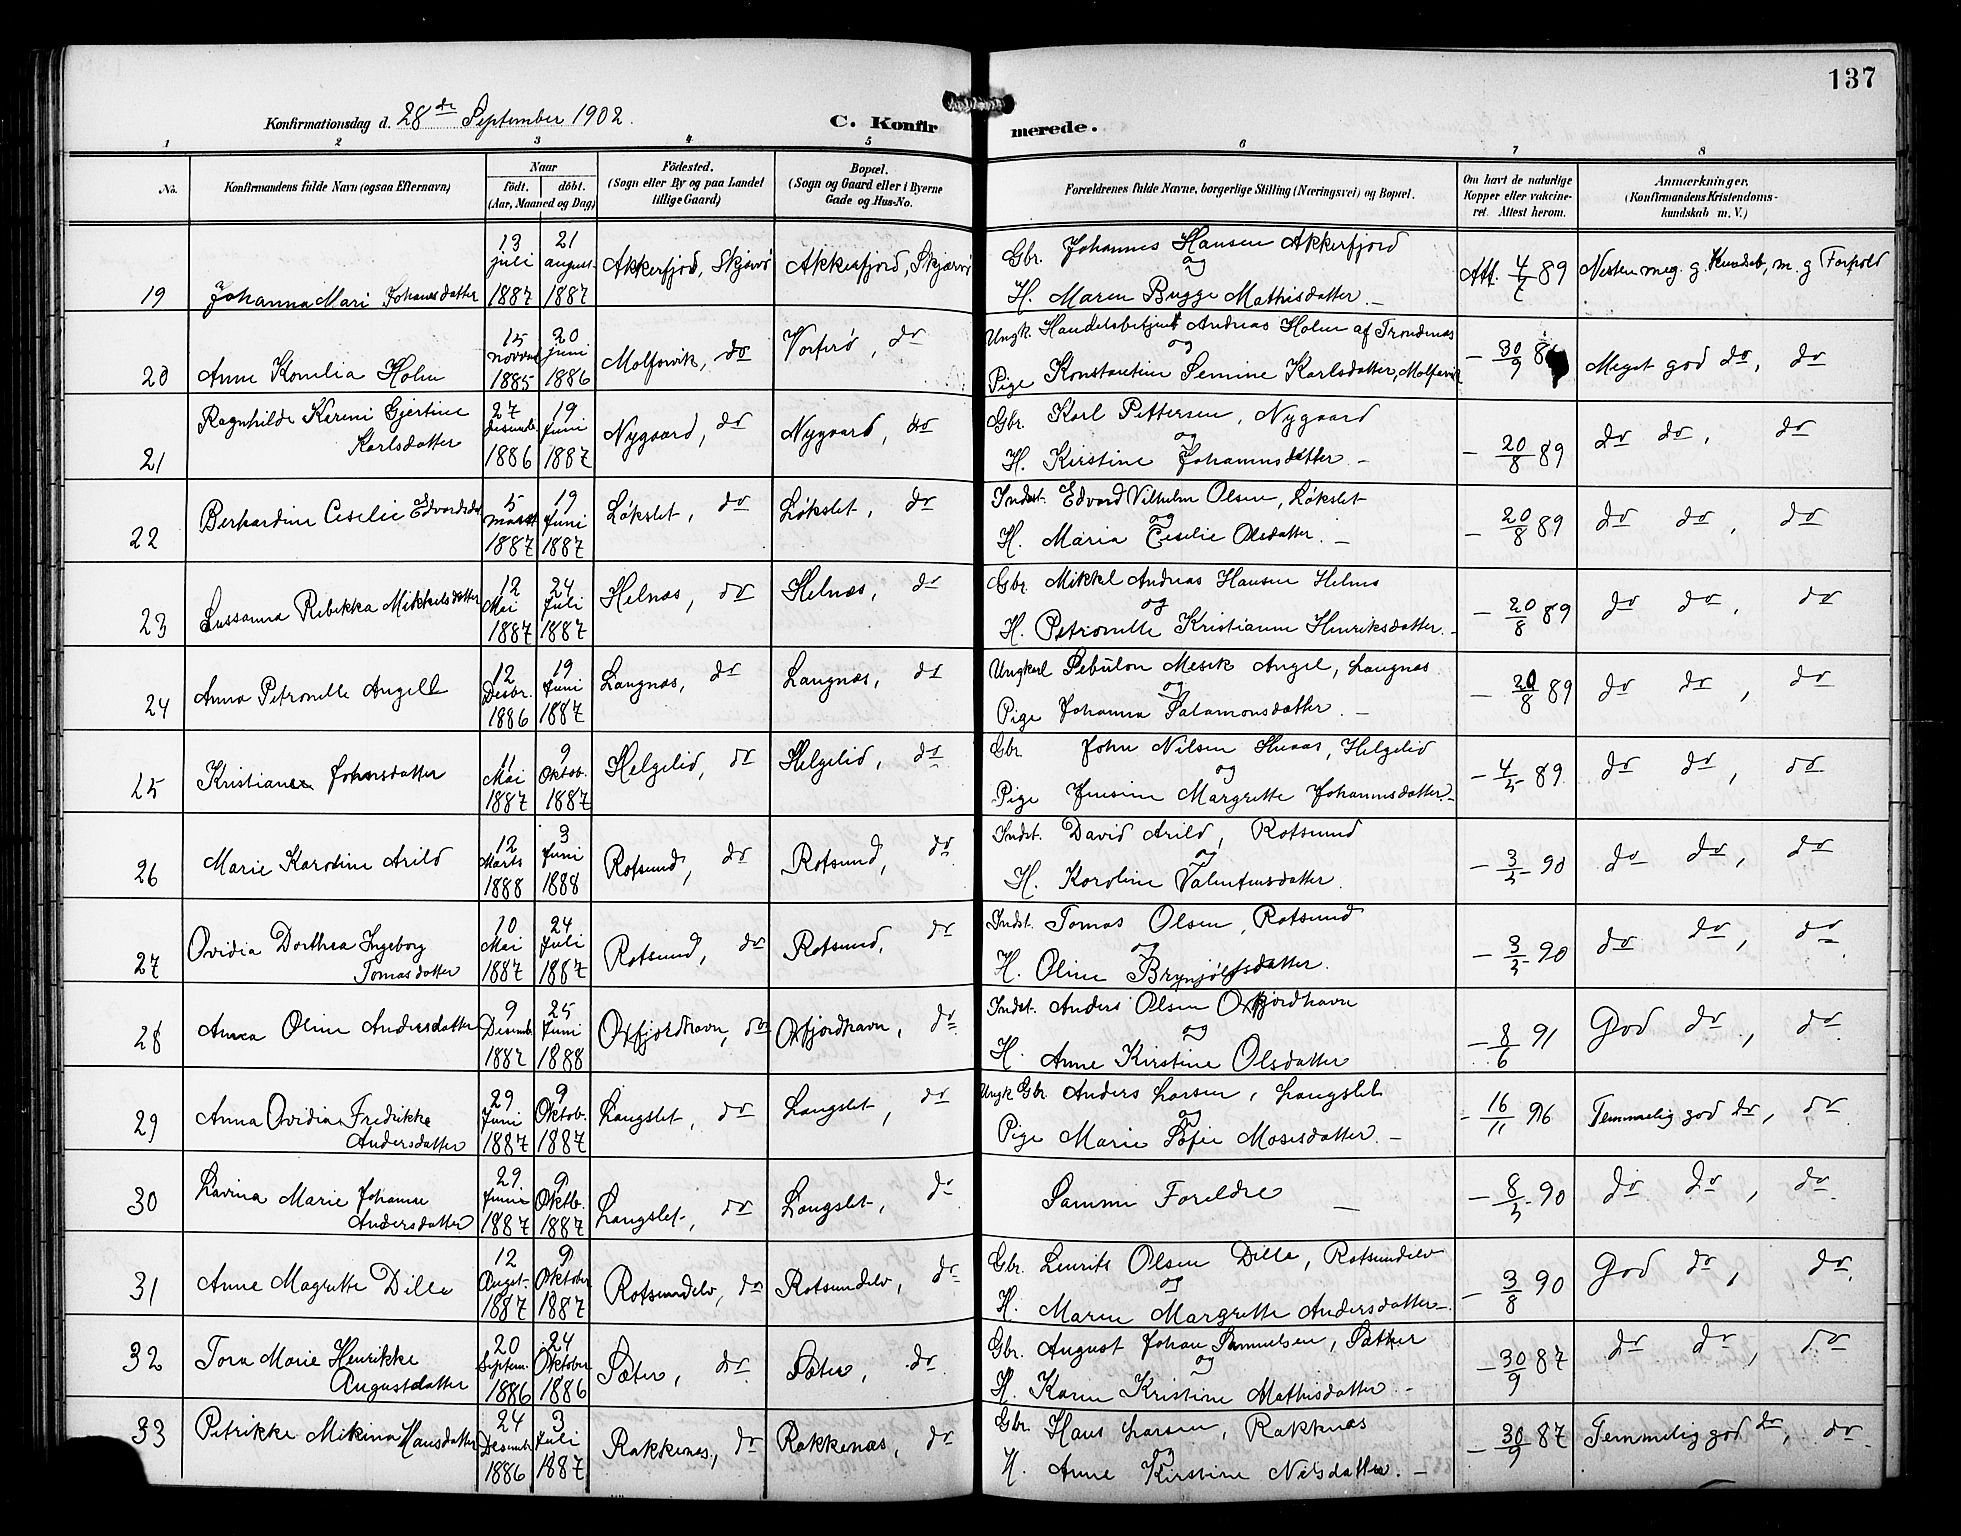 137
Konfirmationsdag d. 28de September 1902.
C. Konfirmerede.
1 2 3 4 5 6 7 8
No.
Konfirmandens fulde Navn (ogsaa Efternavn)
Naar
født. døbt.
(Aar, Maaned og Dag)
Födested.
(Sogn eller By og paa Landet
tillige Gaard)
Bopæl.
(Sogn og Gaard eller i Byerne
Gade og Hus-No.
Forældrenes fulde Navne, borgerlige Stilling (Næringsvei) og Bopæl.
Om havt de naturlige
Kopper eller vakcine-
ret. Attest herom.
Anmærkninger.
(Konfirmandens Kristendoms-
kundskab m. V.)
19 Johanna Mari Johansdatter 13 juli 1887 21 august 1887 Akkerfjord, Skjervø Akkerfjord, Skjærvø
Gbr. Johannes Hansen Akkerfjord
og
H. Maren Bugge Mathisdatter. –
Att. 4/7 89 Nesten meg. g. Kundsk, m. g Forhold
20 Anne Kornelia Holm 15 novem 1885 20 juni 1886 do Vorterø, do
Ungk. Handelsbetjent Andreas Holm af Trondenæs
og
Pige Konstantine Semine Karlsdatter,
– 30/9 Meget god do, do
21 Ragnhilde Kereni Gjertine
Karlsdatter 27 desemb 1886 19 Juni 1887 Nygaard, do Nygaard, do
Gbr. Karl Pettersen, Nygaard
og
H. Kirstine Johannesdatter –
– 20/8 89 do do, do
22 Berhardine Cecilie Edvardsdat 5 marts 1887 19 Juni 1887 Løkslet, do Løkslet, do
Indst. Edvard Vilhelm Olsen, Løkslet
og
H. Maria Cecilie Olsdatter. –
– 20/8 89 do do, do
23 Sussanna Rebekka Mikkelsdatter 12 Mai 1887 24 Juli 1887 Helnæs, do Helnæs, do
Gbr Mikkel Andreas Hansen Helnæs
og
H. Petronelle Kristianne Henriksdatter. –
– 20/8 89 do do, do
24 Anna Petronelle Angell 12 Desbr. 1886 19 Juni 1887 Langnæs, do Langnæs, do
Ungkarl Sebulon Mesik Angel, Langnæs
og
Pige Johanna Salamonsdatter. –
– 20/8 89 do do, do
25 Kristiane Johnsdatter 11 Mai 1887 9 Oktob. 1887 Helgelid, do Helgelid, do
Gbr. John Nilsen, Helgelid
og
Pige Jensine Margrette Johannesdatter. –
– 4/5 89 do do, do
26 Marie Karoline Arild 12 Marts 1888 3 Juni 1888 Rotsund, do Rotsund, do
Indst. David Arild, Rotsund
og
H. Karoline Valentinsdatter.
– 3/5 90 do do, do
27 Ovidia Dorthea Ingeborg
Tomasdatter 10 Mai 1887 24 Juli 1887 Rotsund, do Rotsund, do
Indst. Tomas Olsen, Rotsund
og
H. Oline Brynjolfsdatter.
– 3/5 90 do do, do
28 Annea Oline Andersdatter 9 Desemb. 1887 25 Juni 1888 Oxfjordhavn, do Oxfjordhavn, do
Indst. Anders Olsen Oxfjordhavn
og
H. Anne Kirstine Olsdatter
– 8/6 91 God do, do
29 Anna Ovidia Fredrikke
Andersdatter 29 Juni 1887 9 Oktob. 1887 Langslet, do Langslet, do
Ungk Gbr Anders Larsen, Langslet
og
Pige Marie Sofie Mosesdatter. –
– 16/11 96 Temmelig god do, do
30 Lavina Marie Johanne
Andersdatter 29 Juni 1887 9 Oktb. 1887 Langslet, do Langslet, do
Samme Foreldre –
– 8/5 90 do do, do
31 Anne Magrette Dille 12 Augst. 1887 9 Oktober 1887 Rotsundelv, do Rotsundelv, do
Gbr. Lenrits Olsen Dille, Rotsundelv
og
H. Maren Margrette Andersdatter –
– 3/8 90 God do, do
32 Tora Marie Henrikke
Augustdatter 20 Septem. 1886 24 Oktober 1886 Sæter, do Sæter, do
Gbr. August Johan Samuelsen, Sætter
og
H. Karen Kristine Mathisdatter –
– 30/9 87 do do, do
33 Petrikke Mikina Hansdatter 24 Desemb 1886 3 Juli 1887 Rakkenæs, do Rakkenæs, do
Gbr Hans Larsen, Rakknæs
og
H. Anne Kirstine Nilsdatter. –
– 30/9 87 Temmelig god do, do